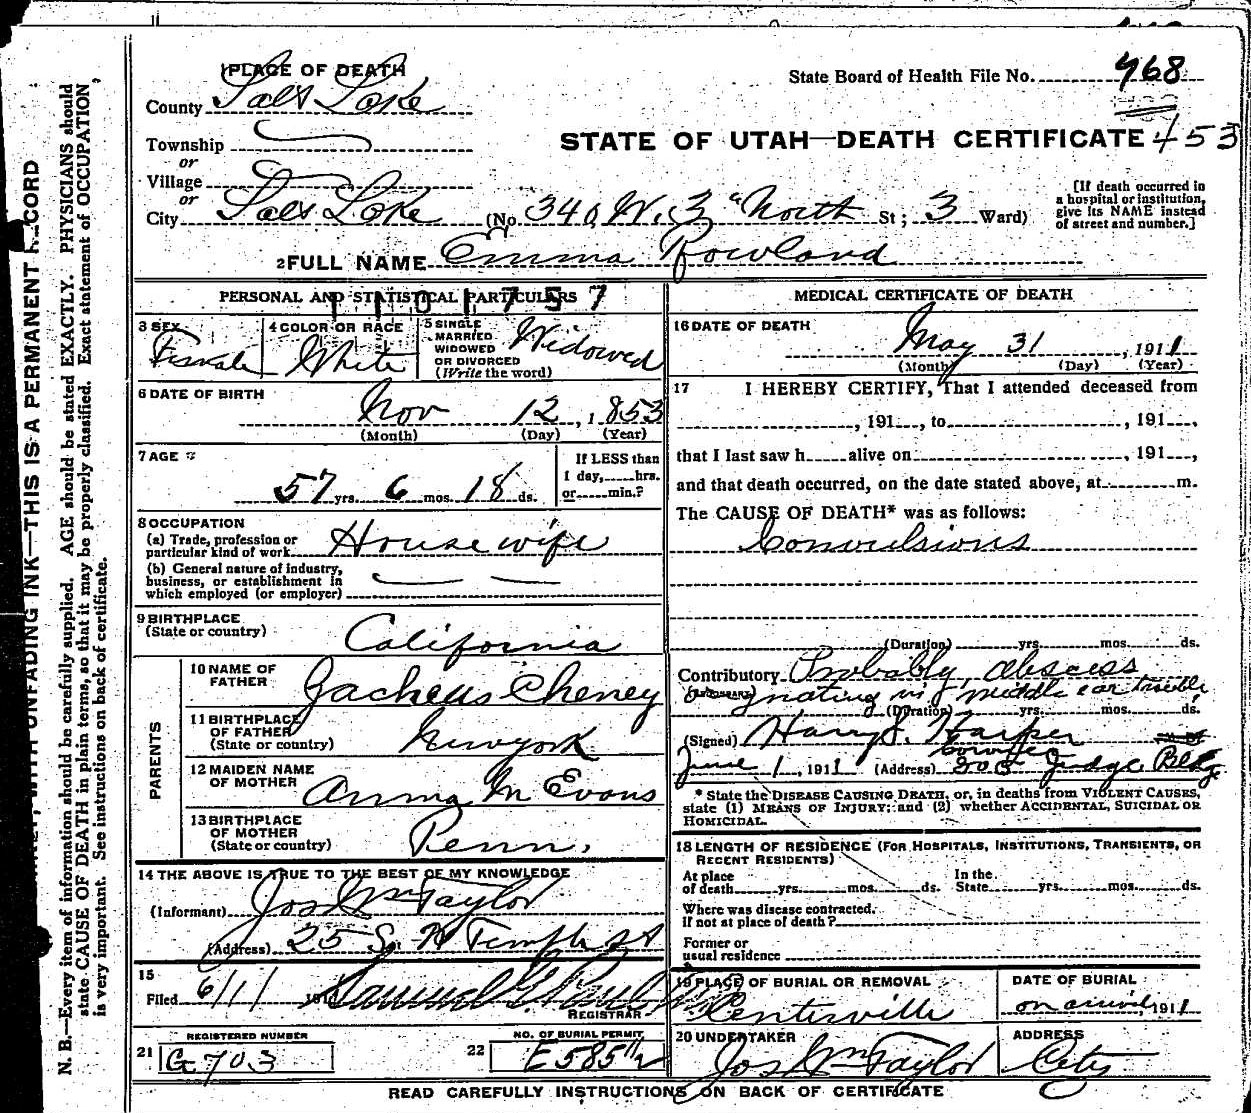 PLACE OF DEATH
County Salt Lake
State Board of Health File No. 468
STATE OF UTAH—DEATH CERTIFICATE 453
Township
or
Village
or
City Salt Lake (No. 340 W. 3 North St; 3 Ward)
[If death occurred in a hospital or institution, give its NAME instead of street and number.]
2 FULL NAME Emma Rowland
PERSONAL AND STATISTICAL PARTICULARS
1101757
3 SEX Female
4 COLOR OR RACE White
5 SINGLE MARRIED WIDOWED OR DIVORCED (Write the word) Widowed
6 DATE OF BIRTH
Nov 12, 1853
(Month) (Day) (Year)
7 AGE
57 yrs. 6 mos. 18 ds.
If LESS than 1 day, hrs. or min.?
8 OCCUPATION
(a) Trade, profession or particular kind of work Housewife
(b) General nature of industry, business, or establishment in which employed (or employer)
9 BIRTHPLACE
(State or country) California
PARENTS
10 NAME OF FATHER Zacheus Cheney
11 BIRTHPLACE OF FATHER (State or country) New york
12 MAIDEN NAME OF MOTHER M Evans
13 BIRTHPLACE OF MOTHER (State or country) Penn.
14 THE ABOVE IS TRUE TO THE BEST OF MY KNOWLEDGE
(Informant) Jos Wm Taylor
(Address) 25 S. W Temple st
15
Filed 6/1/ 191
REGISTRAR
REGISTERED NUMBER
21 G 703
NO. OF BURIAL PERMIT
22 E 585 1/2
MEDICAL CERTIFICATE OF DEATH
16 DATE OF DEATH
May 31, 1911
(Month) (Day) (Year)
17 I HEREBY CERTIFY, That I attended deceased from
, 191 , to , 191 ,
that I last saw h alive on , 191 ,
and that death occurred, on the date stated above, at m.
The CAUSE OF DEATH* was as follows:
Convulsions
(Duration) yrs. mos. ds.
Contributory Probably abscess
nating in middle ear trouble
(Duration) yrs. mos. ds.
(Signed) Harry S. Harper
Coroner
June 1, 1911 (Address) 303 Judge Bldg
* State the DISEASE CAUSING DEATH, or, in deaths from VIOLENT CAUSES, state (1) MEANS OF INJURY; and (2) whether ACCIDENTAL, SUICIDAL OR HOMICIDAL.
18 LENGTH OF RESIDENCE (FOR HOSPITALS, INSTITUTIONS, TRANSIENTS, OR RECENT RESIDENTS)
At place of death yrs. mos. ds. In the State yrs. mos. ds.
Where was disease contracted, if not at place of death?
Former or usual residence
19 PLACE OF BURIAL OR REMOVAL
Centerville
DATE OF BURIAL
on arrival, 1911
20 UNDERTAKER
Jos Wm Taylor
ADDRESS
City
READ CAREFULLY INSTRUCTIONS ON BACK OF CERTIFICATE
WITH UNFADING INK—THIS IS A PERMANENT RECORD
N. B.—Every item of information should be carefully supplied. AGE should be stated EXACTLY. PHYSICIANS should
state CAUSE OF DEATH in plain terms, so that it may be properly classified. Exact statement of OCCUPATION
is very important. See instructions on back of certificate.